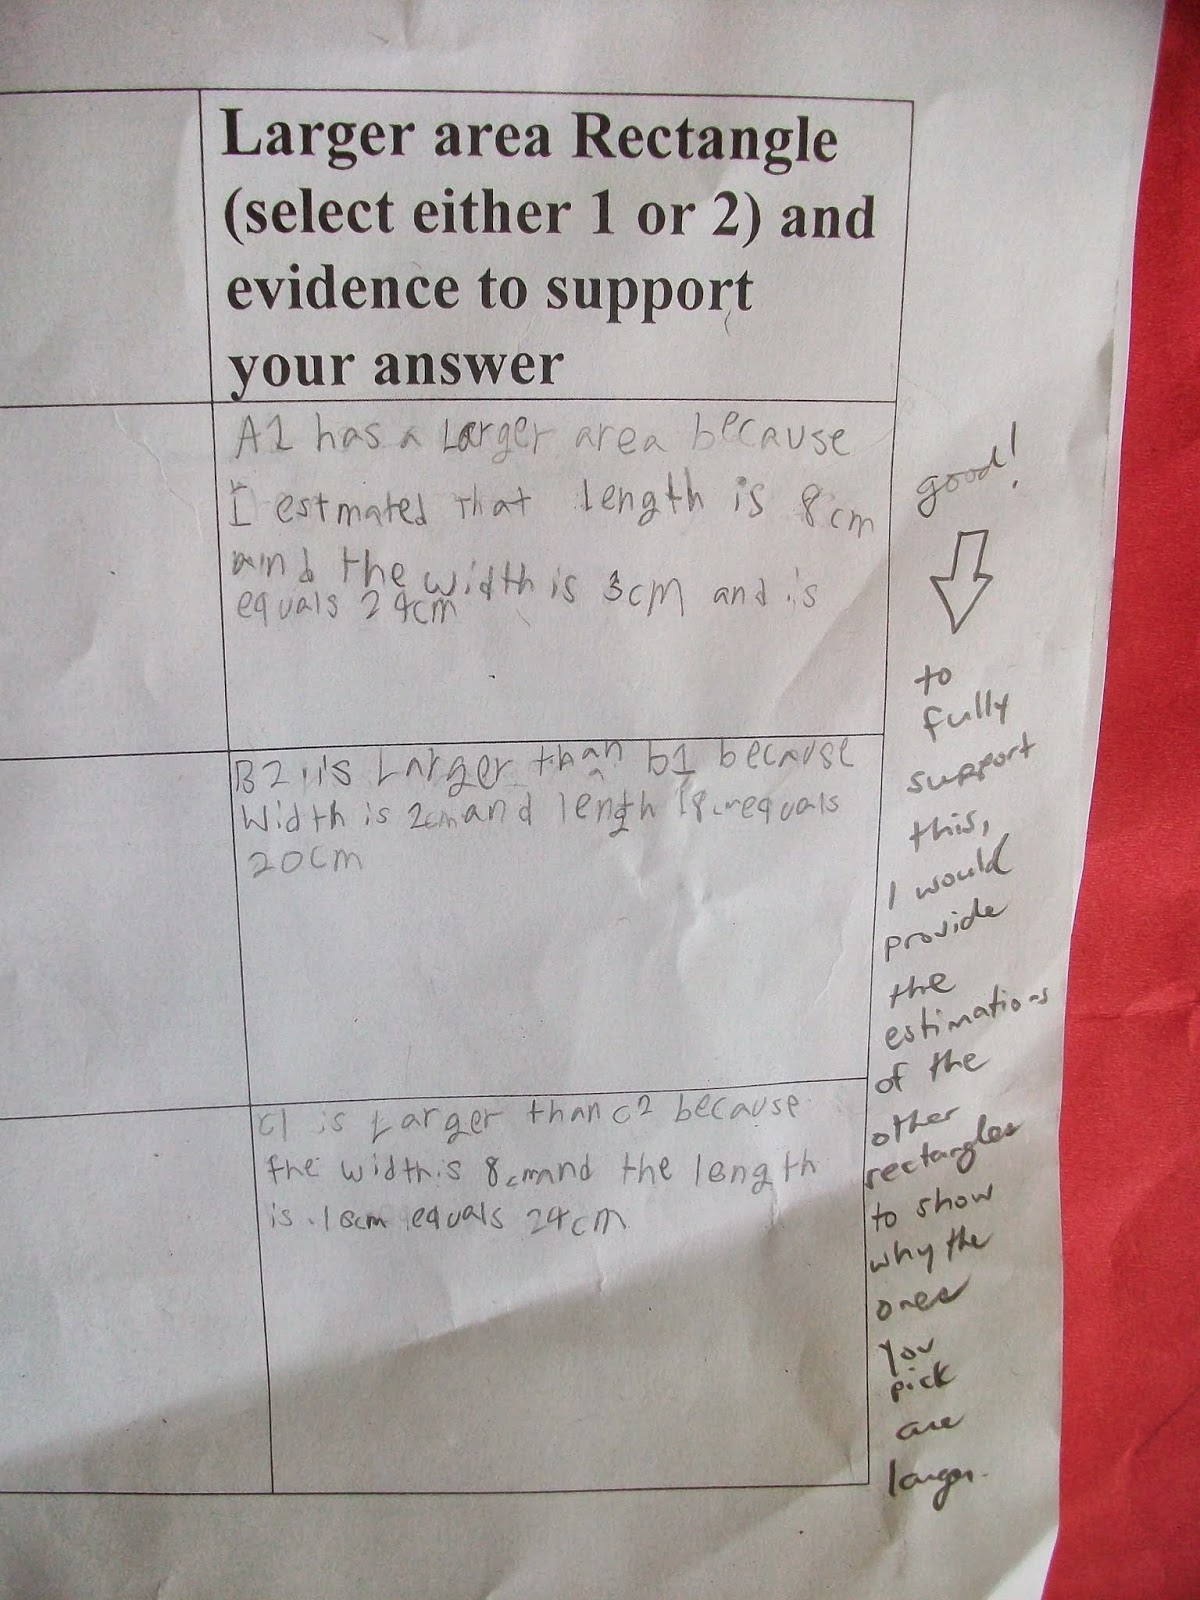 Larger area Rectangle
(select either 1 or 2) and
evidence to support
your answer
A1 has a Larger area because
I estmated that length is 8cm
and the width is 3cm and is
equals 24cm
B2 is Larger than b1 because
Width is 2cm and length 18cm equals
20cm
C1 is Larger than C2 because
the width is 8cm and the length
is 16cm equals 24cm
good!
to
fully
support
this,
I would
provide
the
estimations
of the
other
rectangles
to show
why the
ones
you
pick
are
larger.